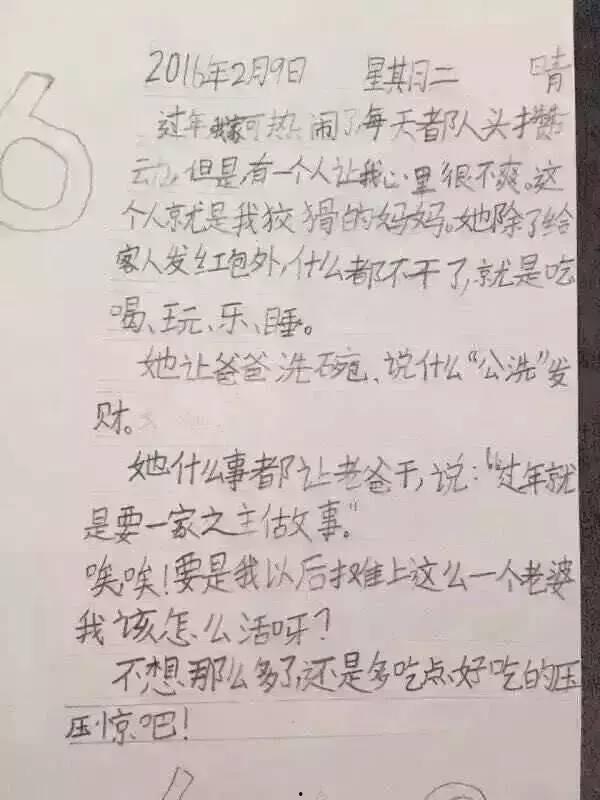 6
2016年2月9日 星期二 晴
过年我家可热闹了,每天都人头攒
动,但是,有一个人让我心里很不爽。这
个人就是我狡猾的妈妈。她除了给
客人发红包外,什么都不干了,就是吃
喝、玩、乐、睡。
她让爸爸洗碗、说什么“公洗”发
财。
她什么事都让老爸干,说:“过年就
是要一家之主做故事。”
唉,唉!要是我以后摊上这么一个老婆
我该怎么活呀?
不想那么多了,还是多吃点好吃的压
压惊吧!